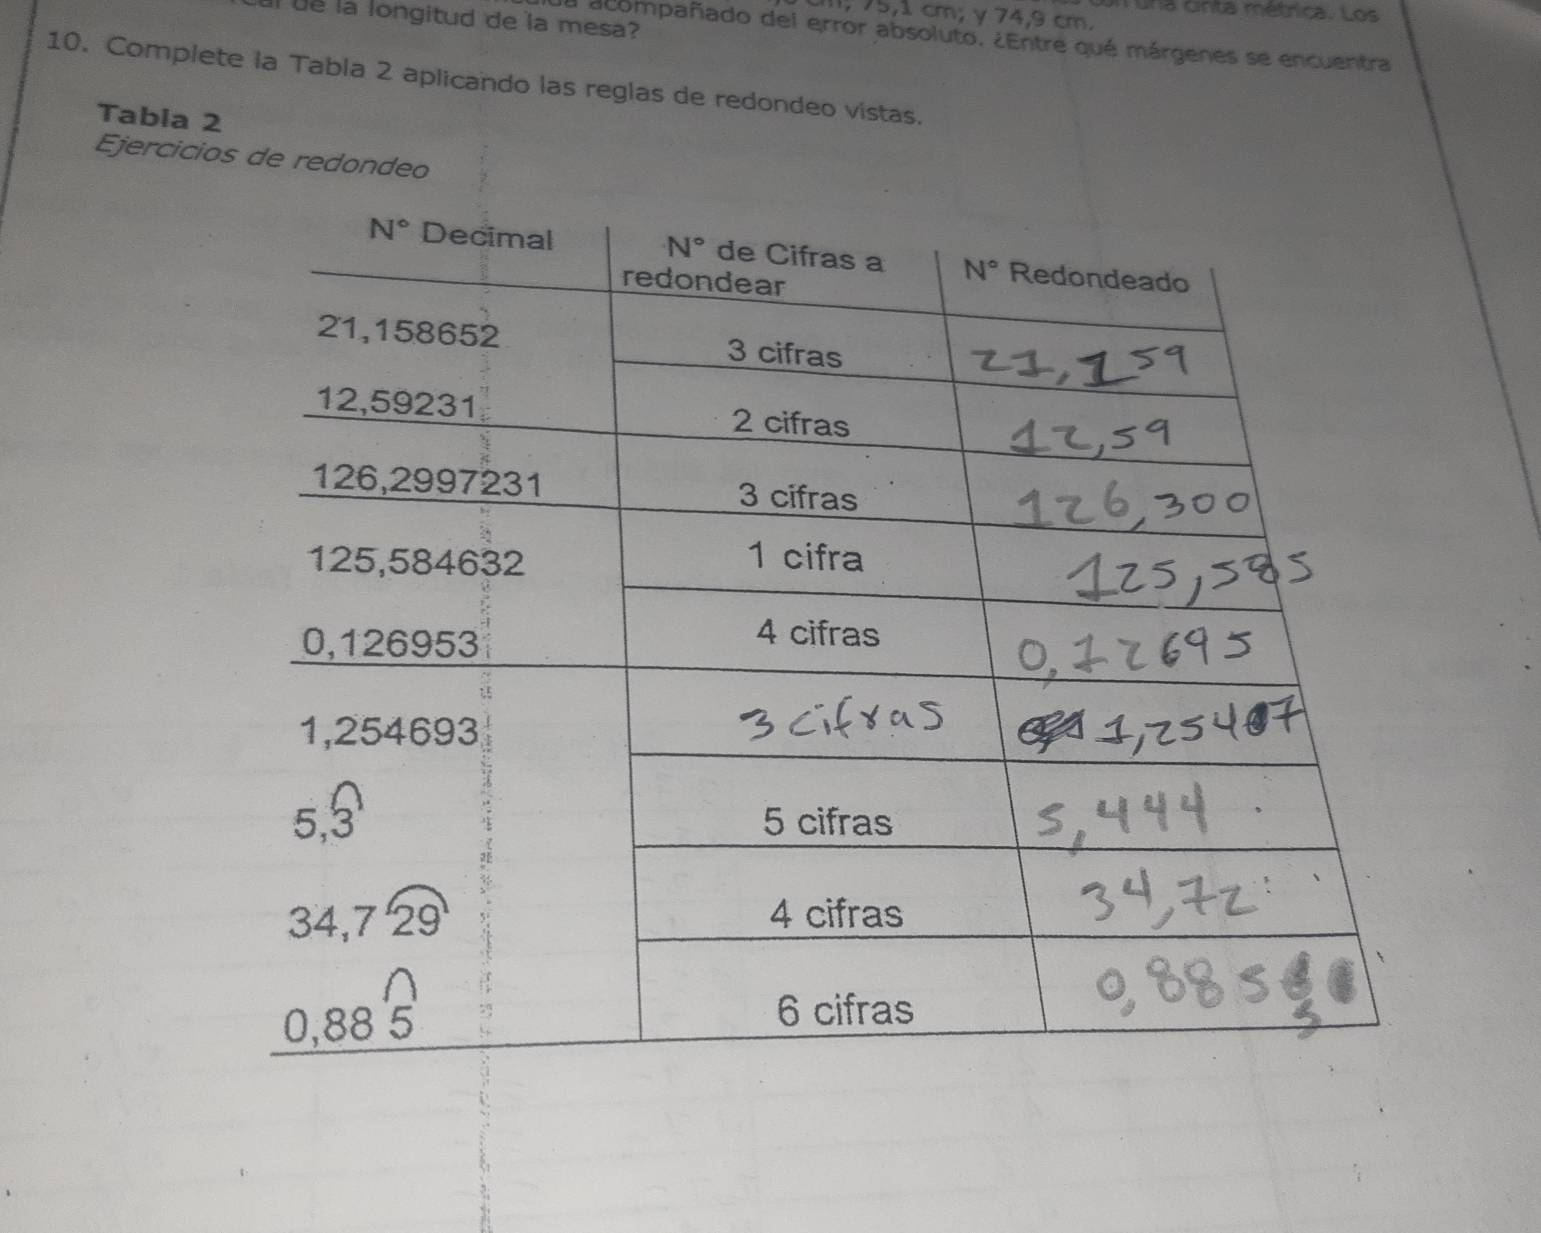 de la longitud de la mesa?
acompañado del error absoluto. ¿Entre qué márgenes se encuentra
75,1 cm; y 74,9 cm.
una cinta métrica. Los
10. Complete la Tabla 2 aplicando las reglas de redondeo vistas.
Tabla 2
Ejercicios de redondeo
N° Decimal N° de Cifras a redondear N° Redondeado
21,158652 3 cifras 21,159
12,59231 2 cifras 12,59
126,2997231 3 cifras 126,300
125,584632 1 cifra 125,585
0,126953 4 cifras 0,12695
1,254693 3 cifras 1,25407
5,3 5 cifras 5,444
34,7 29 4 cifras 34,72
0,88 5 6 cifras 0,885